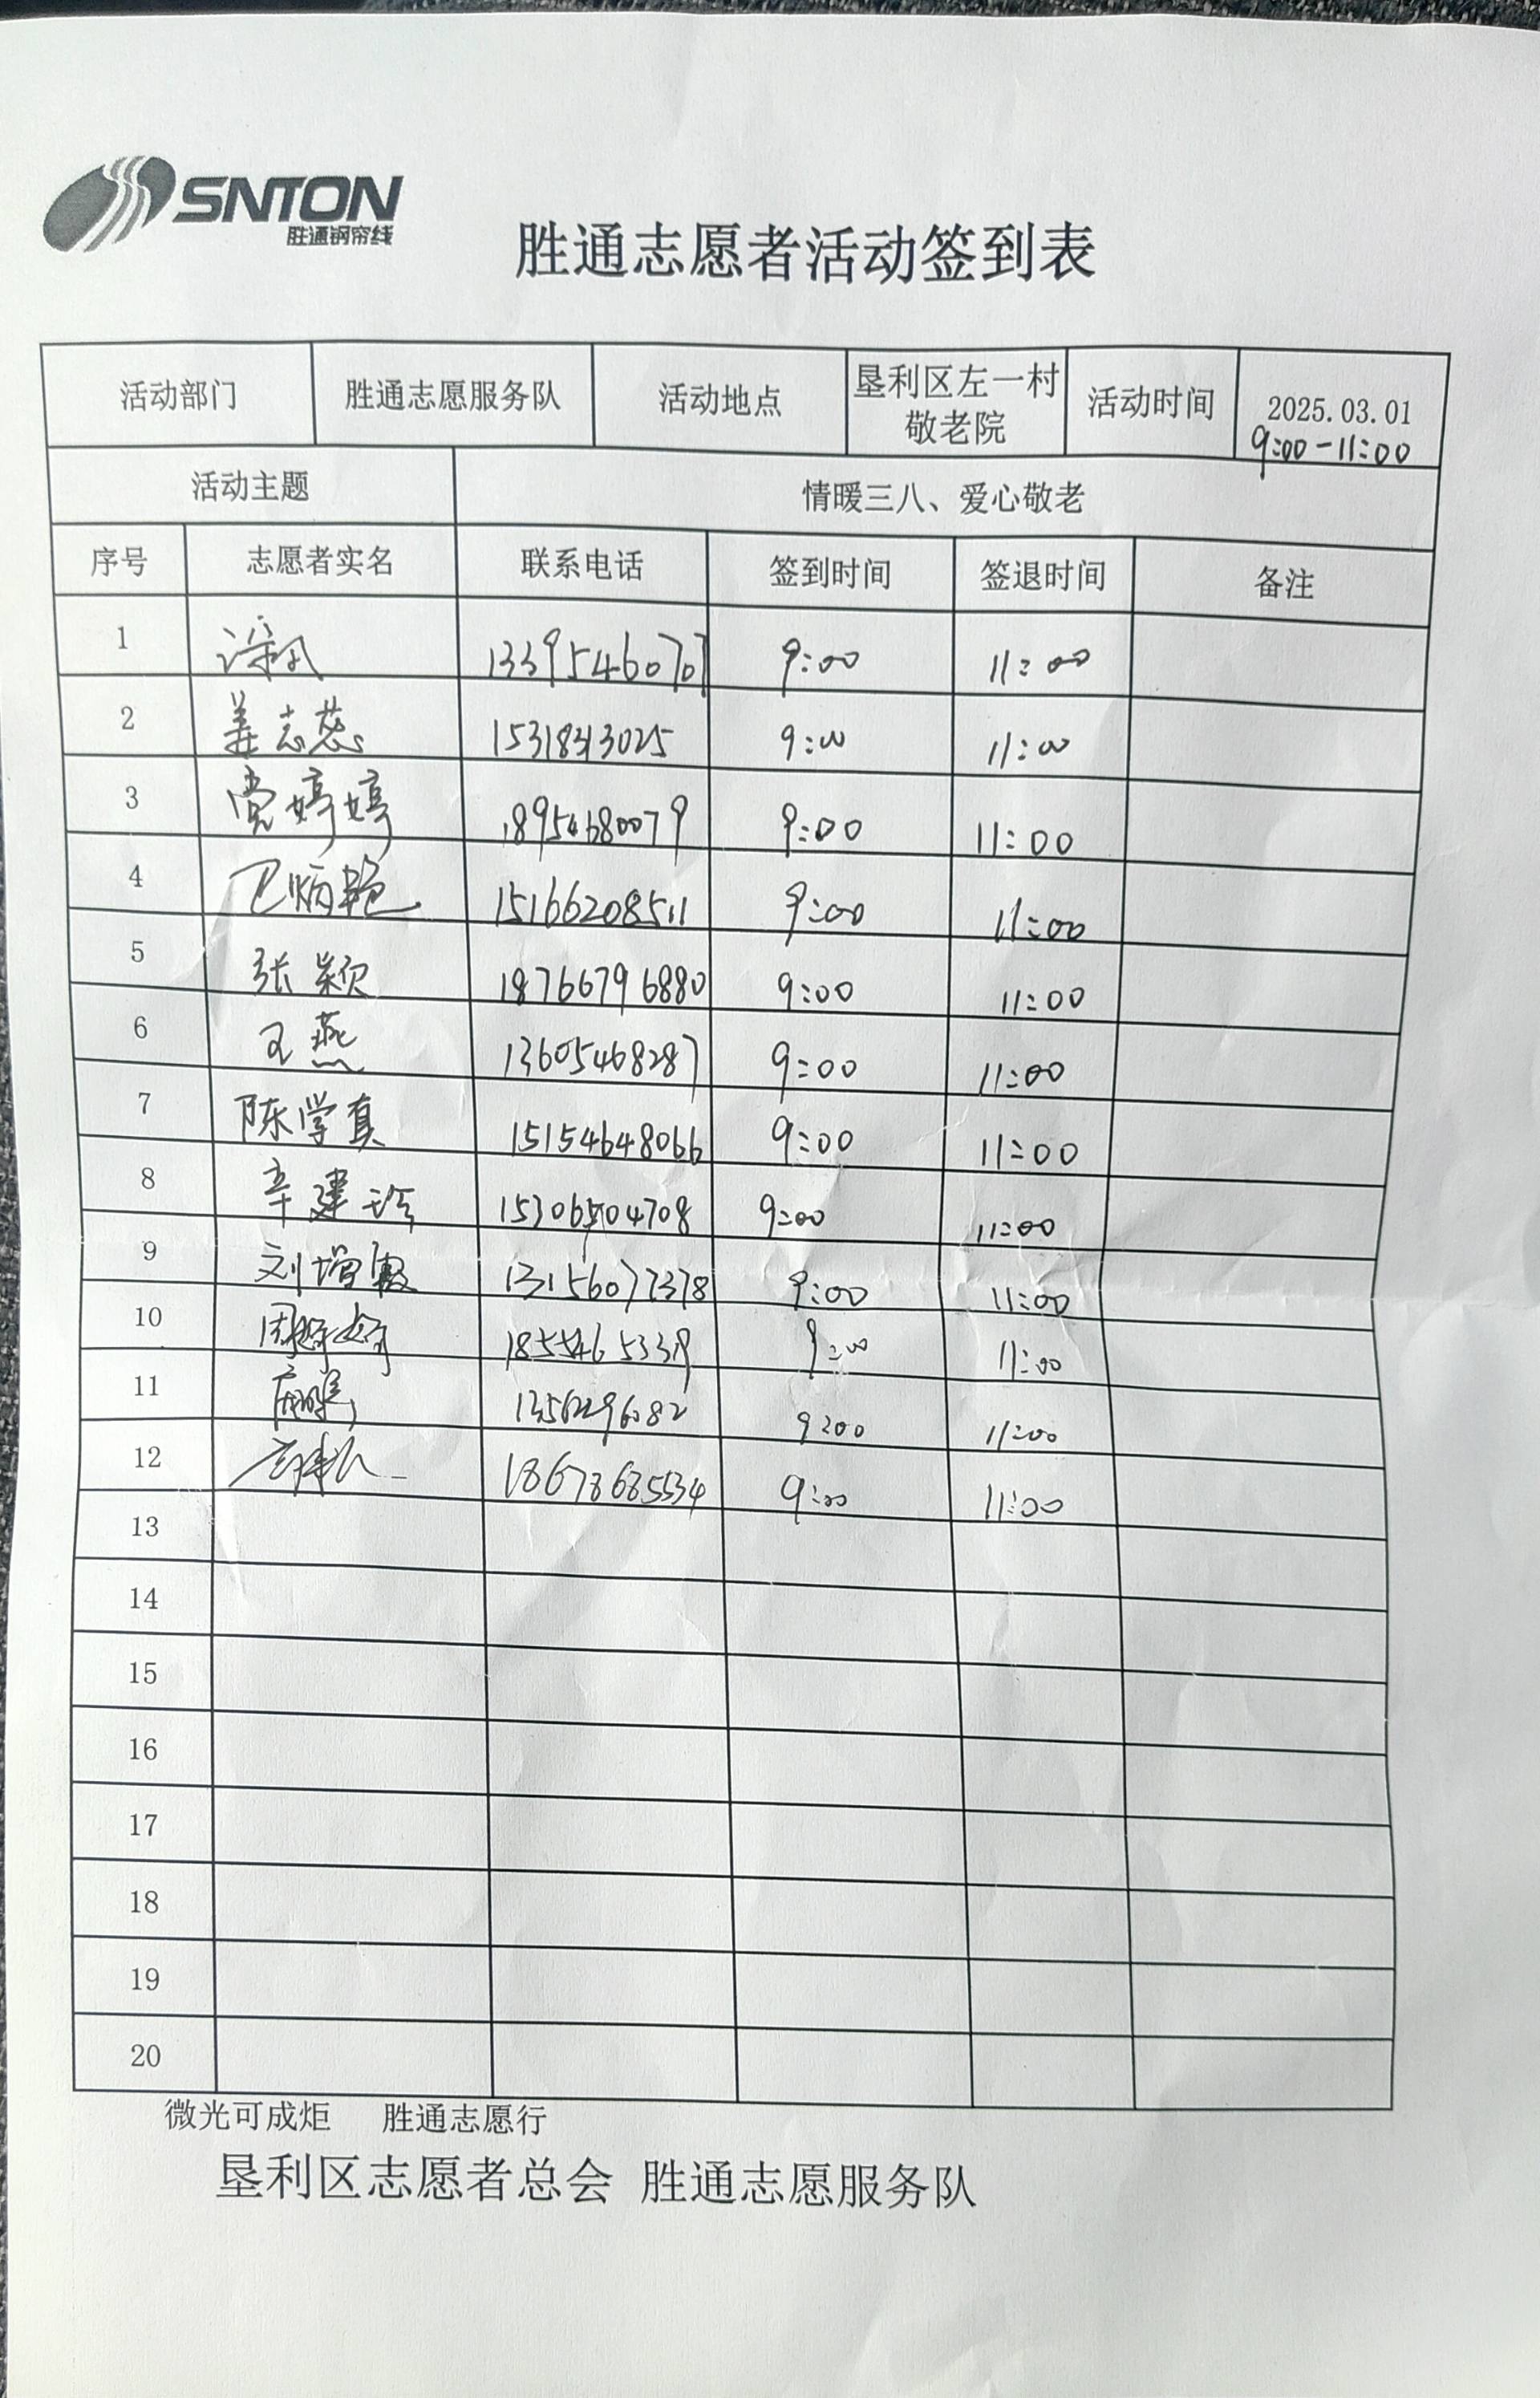 SNTON
胜通钢帘线
胜通志愿者活动签到表
活动部门 胜通志愿服务队 活动地点 垦利区左一村敬老院 活动时间 2025.03.01 9:00-11:00
活动主题 情暖三八、爱心敬老
序号 志愿者实名 联系电话 签到时间 签退时间 备注
1 13395460707 9:00 11:00
2 姜志蕊 9:00 11:00
3 党婷婷 18954680079 9:00 11:00
4 15166208511 9:00 11:00
5 张颖 18766796880 9:00 11:00
6 王燕 13605468287 9:00 11:00
7 陈学真 15154648066 9:00 11:00
8 辛建玲 15306504708 9:00 11:00
9 刘增霞 13156077378 9:00 11:00
10 周婷婷 9:00 11:00
11 9:00 11:00
12 18678685534 9:00 11:00
13
14
15
16
17
18
19
20
微光可成炬 胜通志愿行
垦利区志愿者总会 胜通志愿服务队